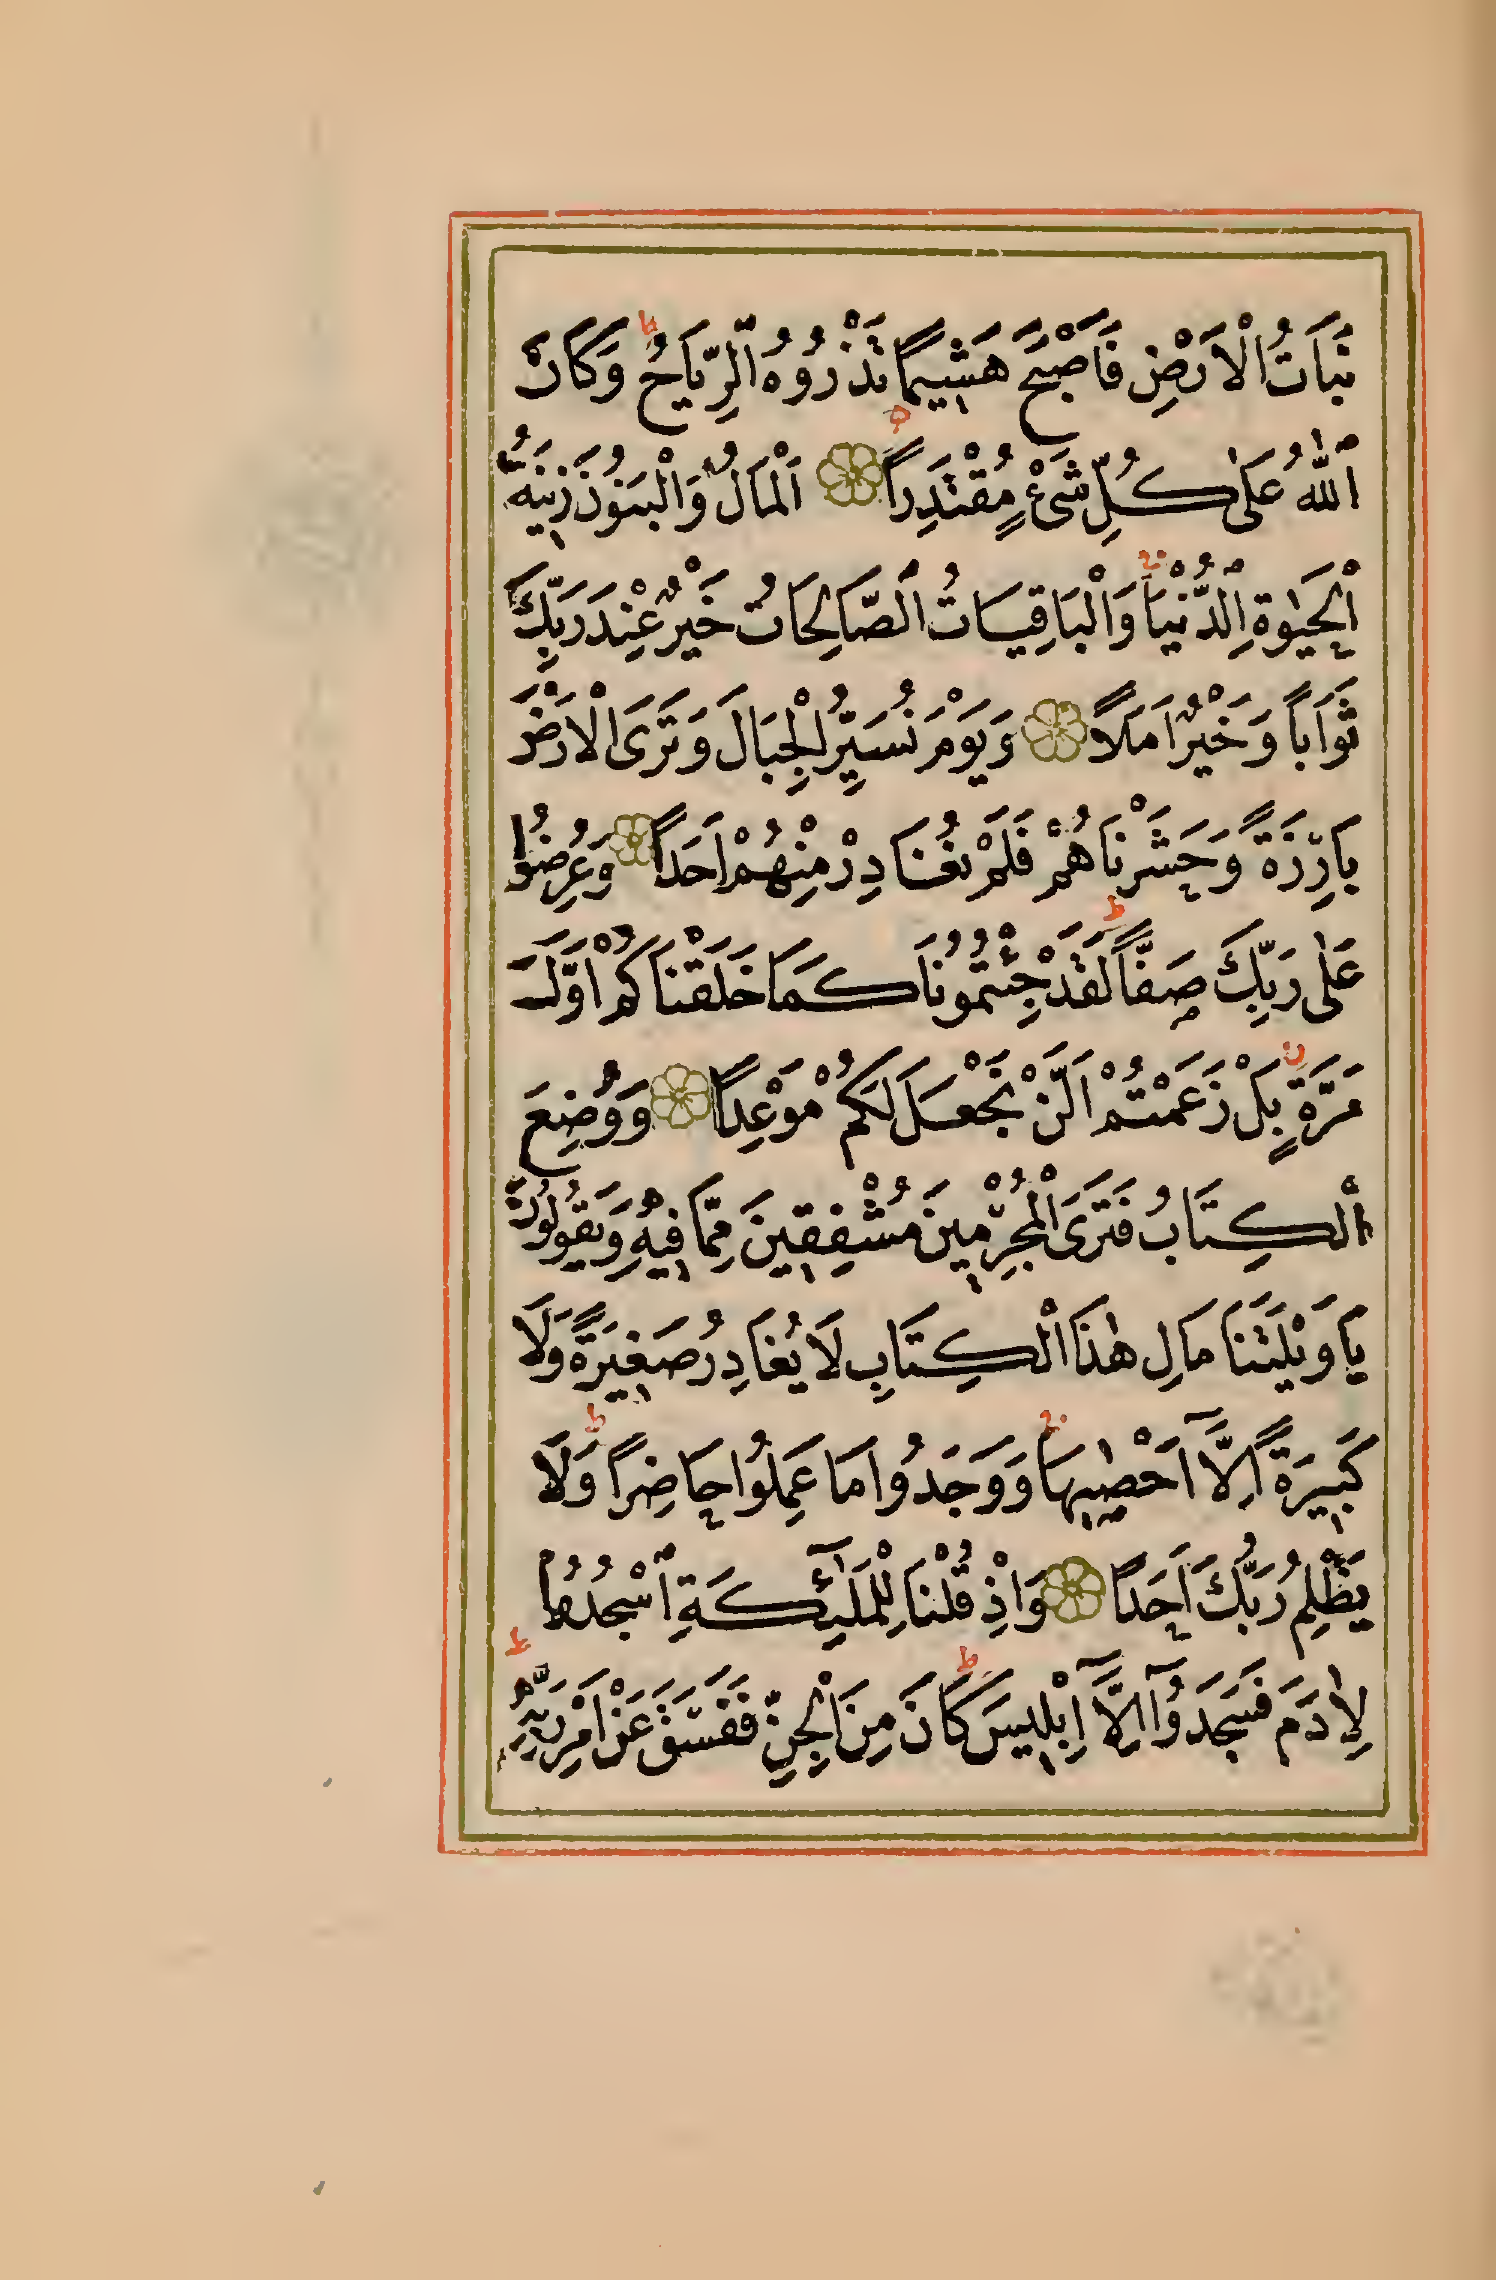 نَبَاتُ الْاَرْضِ فَاَصْبَحَ هَشٖيمًا تَذْرُوهُ الرِّيَاحُ ط وَكَانَ
اللّٰهُ عَلٰى كُلِّ شَىْءٍ مُقْتَدِرًا اَلْمَالُ وَالْبَنُونَ زٖينَةُ
الْحَيٰوةِ الدُّنْيَا وَالْبَاقِيَاتُ الصَّالِحَاتُ خَيْرٌ عِنْدَ رَبِّكَ
ثَوَابًا وَخَيْرٌ اَمَلًا وَيَوْمَ نُسَيِّرُ الْجِبَالَ وَتَرَى الْاَرْضَ
بَارِزَةً وَحَشَرْنَاهُمْ فَلَمْ نُغَادِرْ مِنْهُمْ اَحَدًا وَعُرِضُوا
عَلٰى رَبِّكَ صَفًّا ط لَقَدْ جِئْتُمُونَا كَمَا خَلَقْنَاكُمْ اَوَّلَ
مَرَّةٍ بَلْ زَعَمْتُمْ اَلَّنْ نَجْعَلَ لَكُمْ مَوْعِدًا وَوُضِعَ
الْكِتَابُ فَتَرَى الْمُجْرِمٖينَ مُشْفِقٖينَ مِمَّا فٖيهِ وَيَقُولُونَ
يَا وَيْلَتَنَا مَالِ هٰذَا الْكِتَابِ لَا يُغَادِرُ صَغٖيرَةً وَلَا
كَبٖيرَةً اِلَّٓا اَحْصٰيهَا وَوَجَدُوا مَا عَمِلُوا حَاضِرًا ط وَلَا
يَظْلِمُ رَبُّكَ اَحَدًا وَاِذْ قُلْنَا لِلْمَلٰٓئِكَةِ اسْجُدُوا
لِاٰدَمَ فَسَجَدُٓوا اِلَّٓا اِبْلٖيسَ ط كَانَ مِنَ الْجِنِّ فَفَسَقَ عَنْ اَمْرِ رَبِّهٖ ط